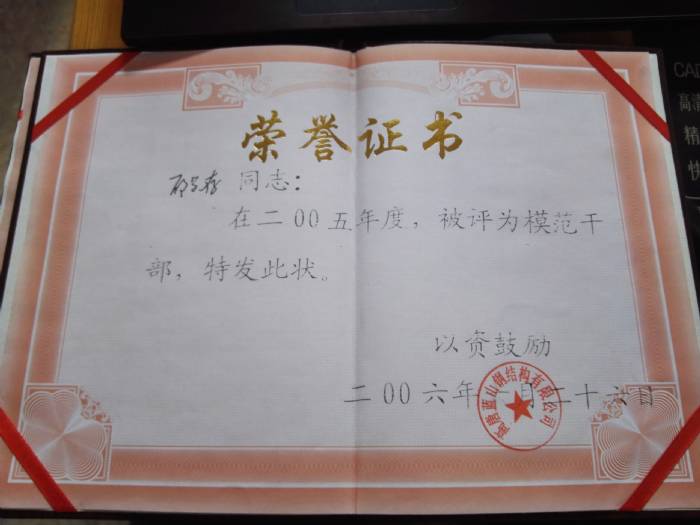 荣誉证书
同志：
在二00五年度，被评为模范干
部，特发此状。
以资鼓励
二00六年一月二十六日
蓝山钢结构有限公司
高清
精
快